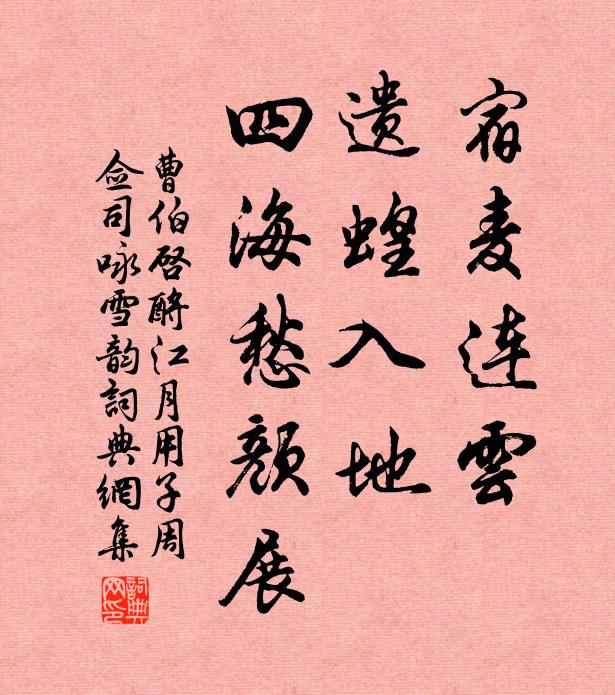 宿麦连雲
遗蝗入地
四海愁颜展
曹伯啓酹江月用子周
佥司咏雪韵詞典網集
詞典网印